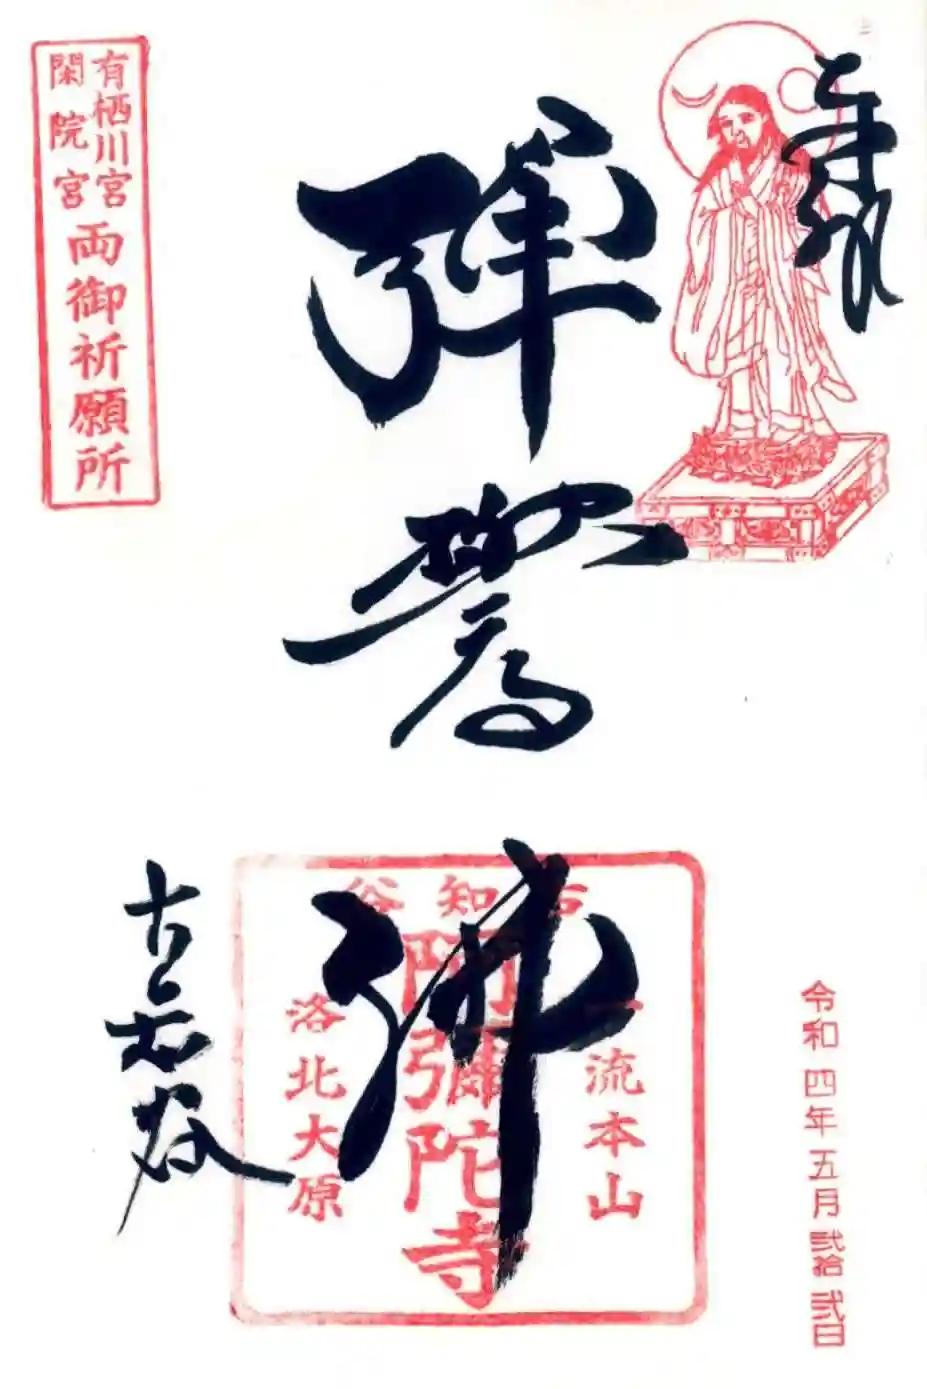 奉拝
令和四年五月弐拾弐日
彈誓
佛
古知谷
一流本山
阿彌陀寺
洛北大原
古知谷
有栖川宮
閑院宮
両御祈願所